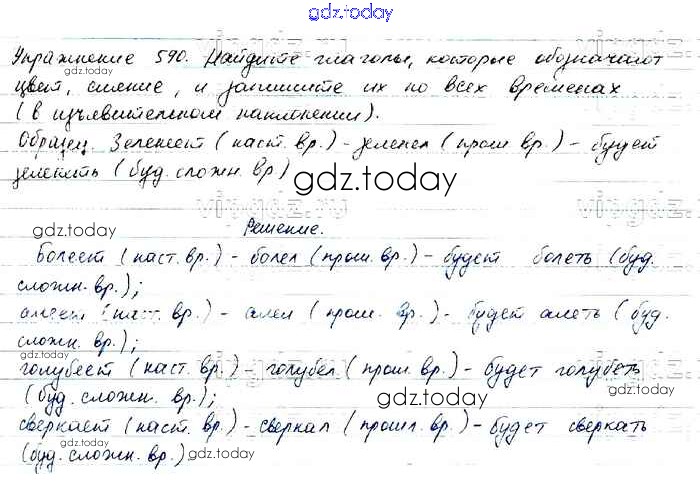 gdz.today
Упражнение 590. Найдите глаголы, которые обозначают
gdz.today
цвет, сияние, и запишите их во всех временах
(в изъявительном наклонении).
Образец. Зеленеет (наст. вр.) - зеленел (прош. вр.) - будет
зеленеть (буд. сложн. вр)
gdz.today
gdz.today
Решение.
Болеет (наст. вр.) - болел (прош. вр.) - будет болеть (буд.
сложн. вр.);
алеет (наст. вр.) - алел (прош. вр.) - будет алеть (буд.
сложн. вр.);
gdz.today
голубеет (наст. вр.) - голубел (прош. вр.) - будет голубеть
(буд. сложн. вр.);
gdz.today
сверкает (наст. вр.) - сверкал (прошл. вр.) - будет сверкать
gdz.today
(буд. сложн. вр.)
gdz.today